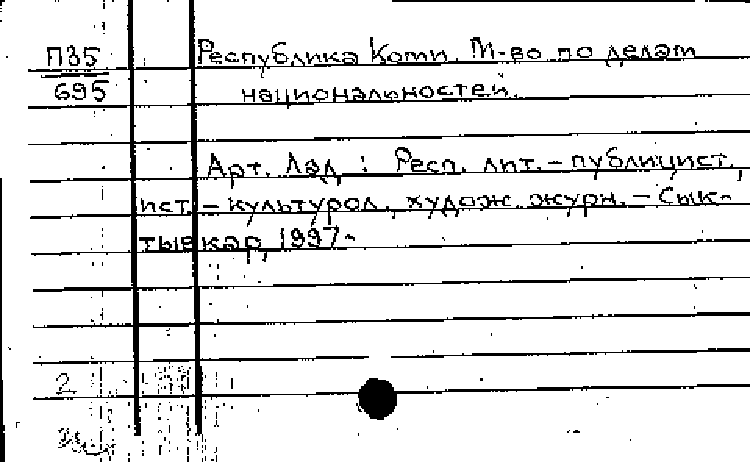 П35 Республика Коми. М-во по делам
695 национальностей.
Арт. Лад : Респ. лит.-публицист.,
ист.-культурол., худож. журн. - Сык-
тывкар, 1997-
2